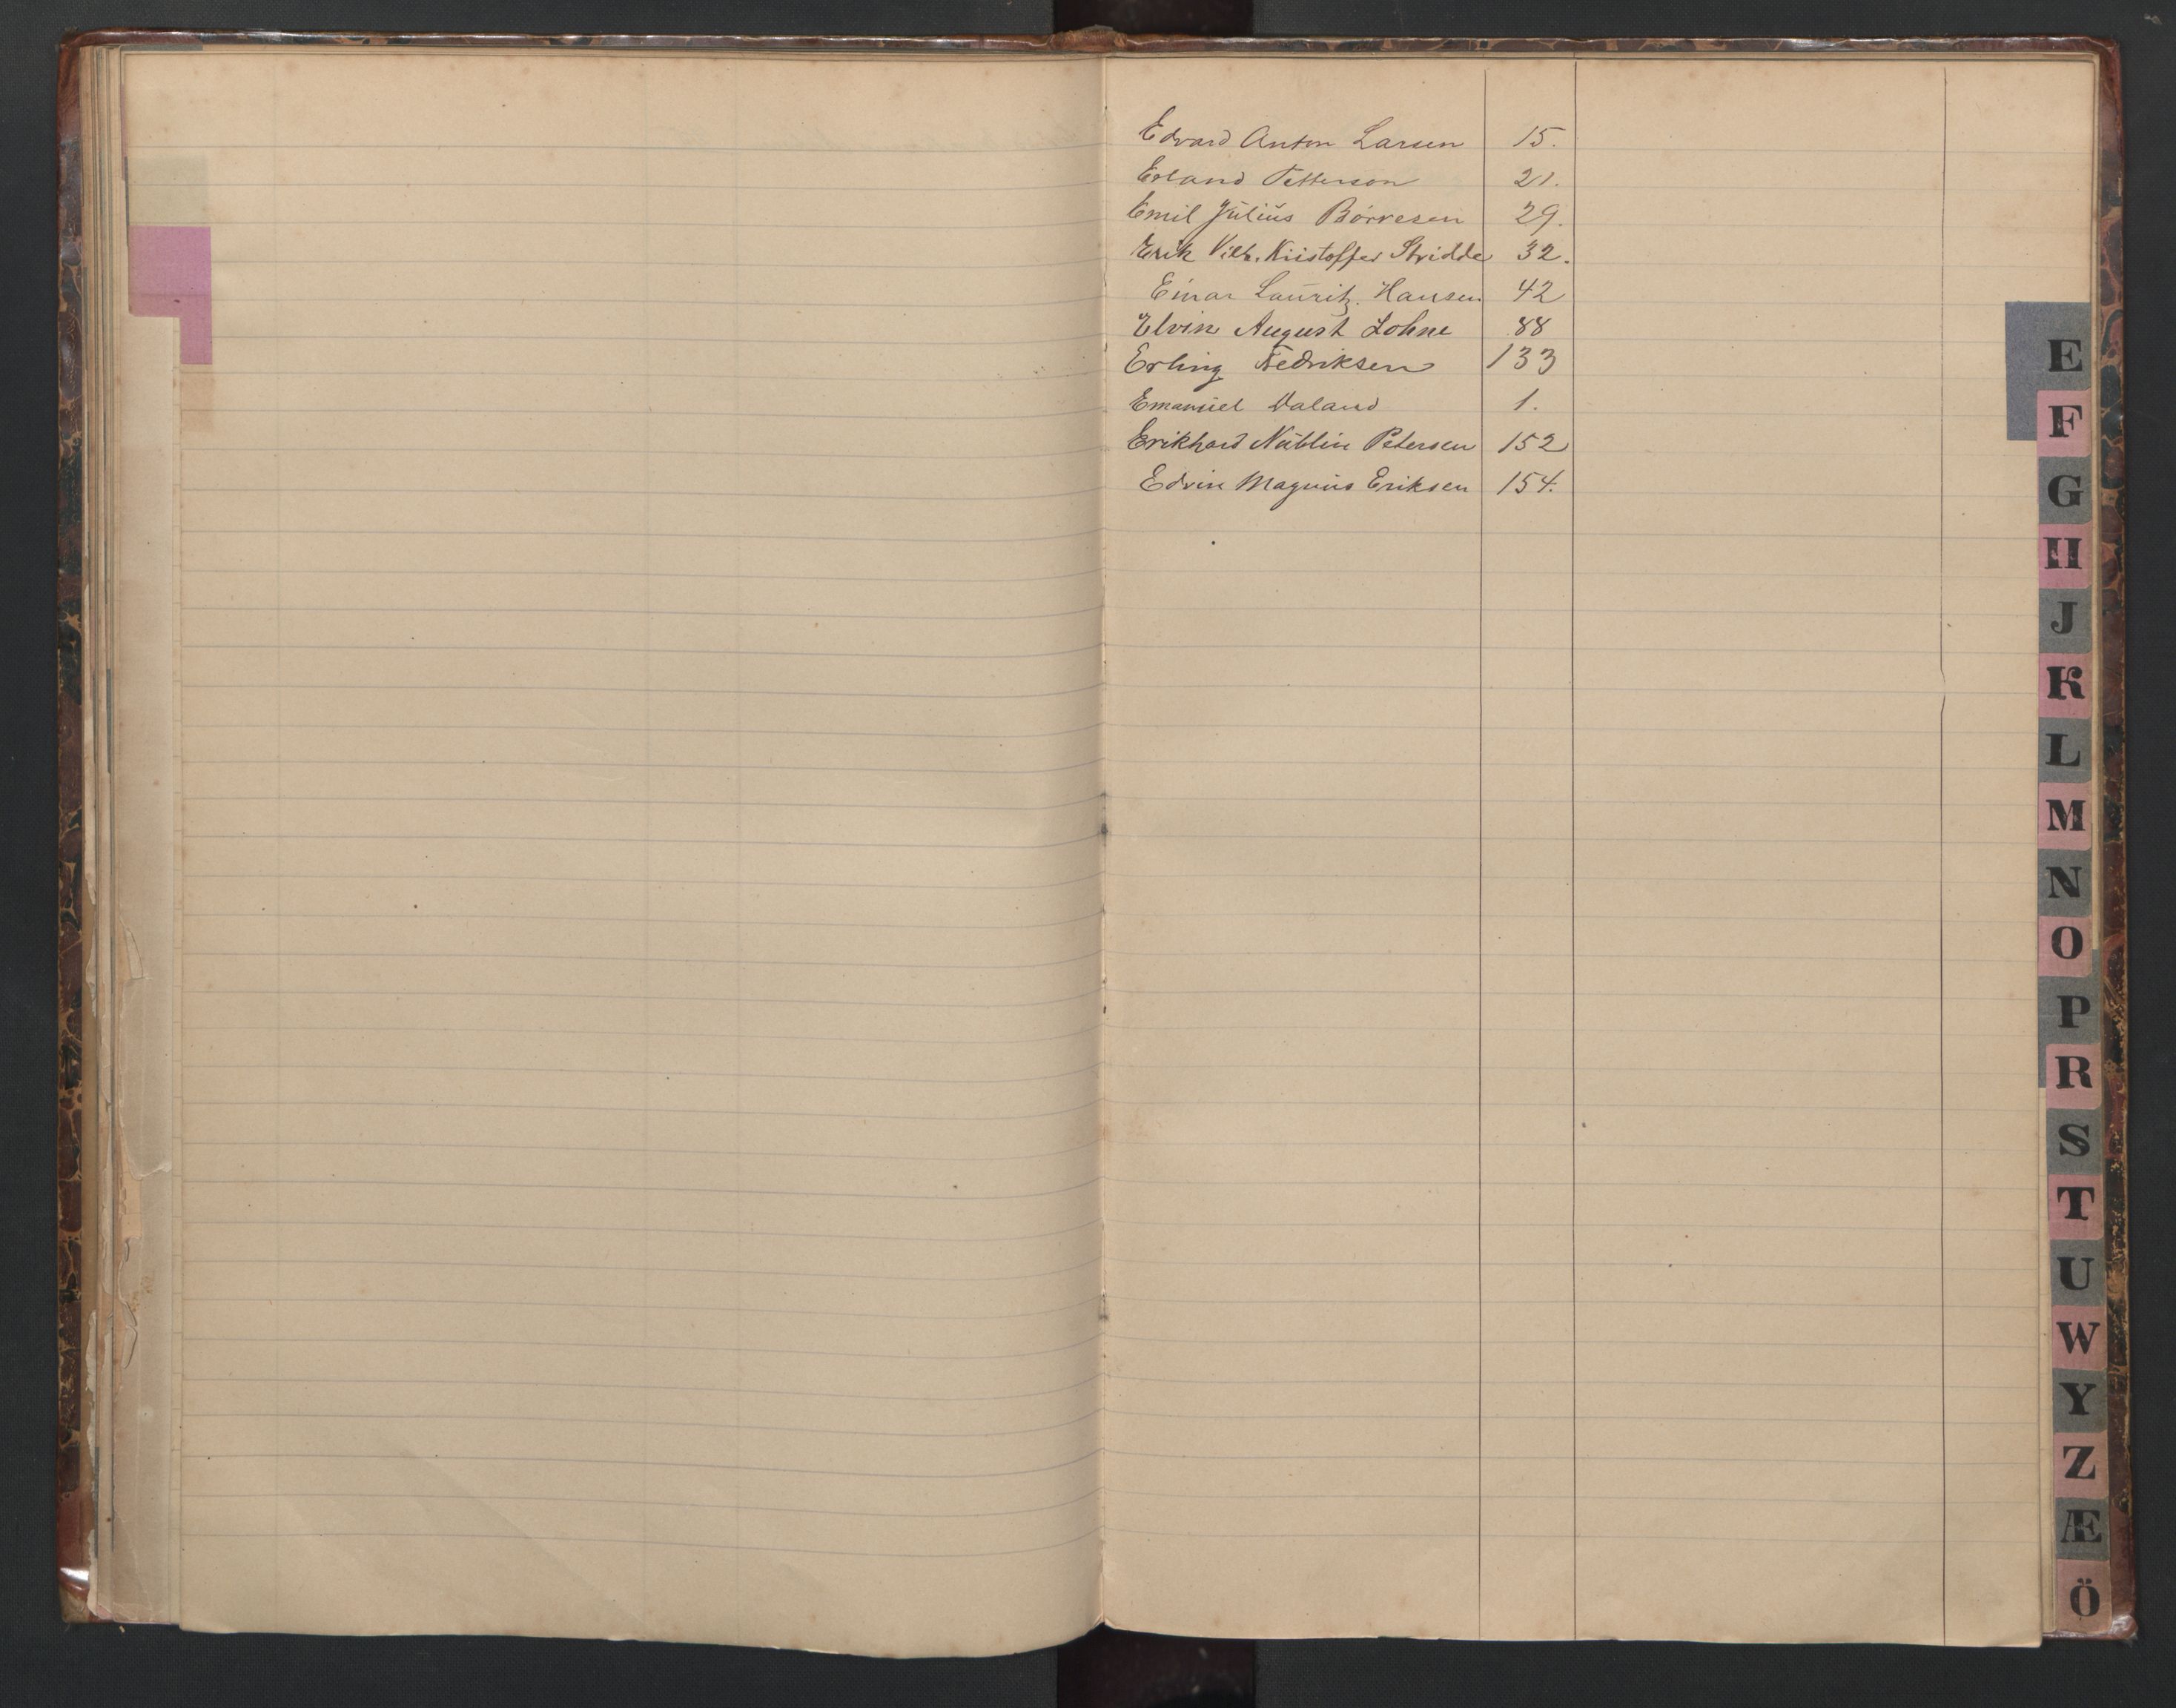 Edvard Anton Larsen 15.
Erland Petterson 21.
Emil Julius Börresen 29.
Erik Vilh. Kristoffer Stridde 32.
Einar Lauritz. Hansen 42
Elvin August Lohne 88
Erling Fredriksen 133
Emanuel Valand 1.
Erikhard Petersen 152
Edvin Magnus Eriksen 154.
E
F
G
H
J
K
L
M
N
O
P
R
S
T
U
W
Y
Z
Æ
Ö